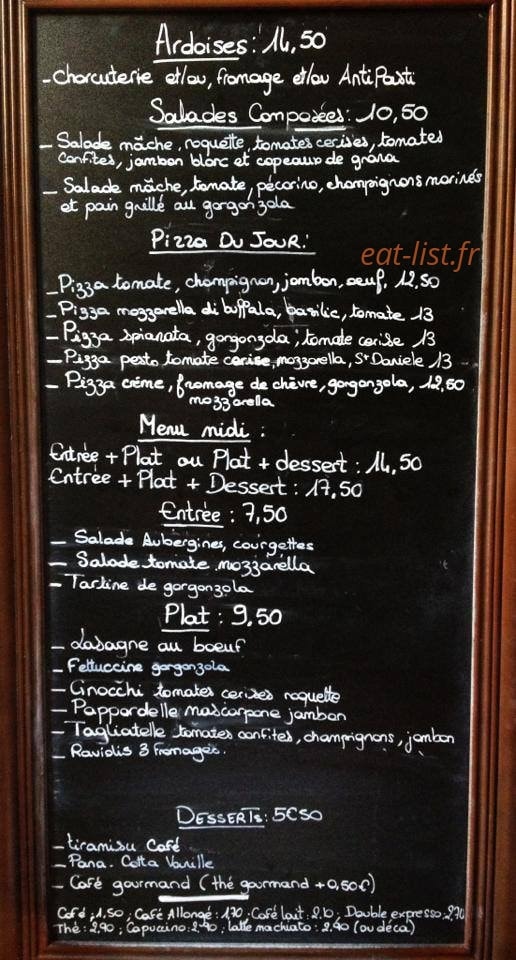 Ardoises : 14,50
- Charcuterie et/ou, fromage et/ou AntiPasti
Salades Composées : 10,50
- Salade mâche, roquette, tomates cerises, tomates
confites, jambon blanc et copeaux de grana
- Salade mâche, tomate, pécorino, champignons marinés
et pain grillé au gorgonzola
Pizza Du Jour :
eat-list.fr
- Pizza tomate, champignon, jambon, oeuf, 12,50
- Pizza mozzarella di buffala, basilic, tomate 13
- Pizza spianata, gorgonzola, tomate cerise 13
- Pizza pesto tomate cerise, mozzarella, St Daniele 13
- Pizza crème, fromage de chèvre, gorgonzola, 12,50
mozzarella
Menu midi :
Entrée + Plat ou Plat + dessert : 14,50
Entrée + Plat + Dessert : 17,50
Entrée : 7,50
- Salade Aubergines, courgettes
- Salade tomate mozzarella
- Tartine de gorgonzola
Plat : 9,50
- Lasagne au boeuf
- Fettuccine gorgonzola
- Gnocchi tomates cerises roquette
- Pappardelle mascarpone jambon
- Tagliatelle tomates confites, champignons, jambon
- Raviolis 3 fromages.
Desserts : 5€50
- tiramisu Café
- Pana. Cotta Vanille
- Café gourmand (thé gourmand +0,50€)
Café : 1,50 ; Café Allongé : 1,70 ; Café lait : 2.10 ; Double expresso : 2,70
Thé : 2,90 ; Capucino : 2,40 ; latte machiato : 2.90 (ou déca)